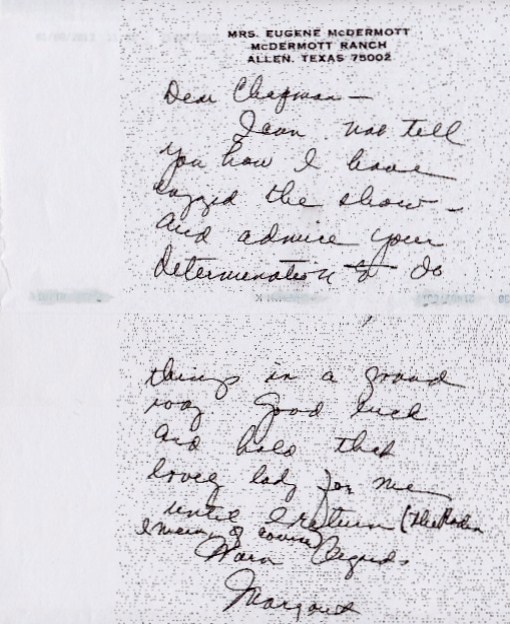 MRS. EUGENE McDERMOTT
McDERMOTT RANCH
ALLEN, TEXAS 75002
Dear Chapman —
I can not tell
you how I have
enjoyed the show —
And admire your
determination to do
things in a grand
way. Good luck
and hold that
lovely lady for me
until I return (the Rodin
I mean of course)
Warm Regards
Margaret